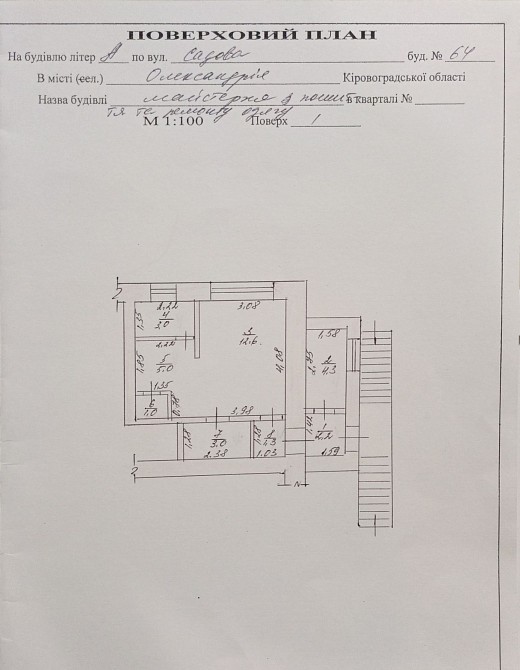 ПОВЕРХОВИЙ ПЛАН
На будівлю літер А по вул. Садова буд. № 64
В місті (сел.) Олександрія Кіровоградської області
Назва будівлі майстерня з пошит- в кварталі №
тя та ремонту одягу
М 1:100 Поверх 1
2,22
3,08
1,35
4
2,0
2,22
3
12,6
1,58
1,85
5
5,0
4,08
2,85
2
4,3
1,35
6
1,0
0,78
3,98
1,28
7
3,0
2,38
1,28
8
1,3
1,03
1,42
1
2,2
1,59
N